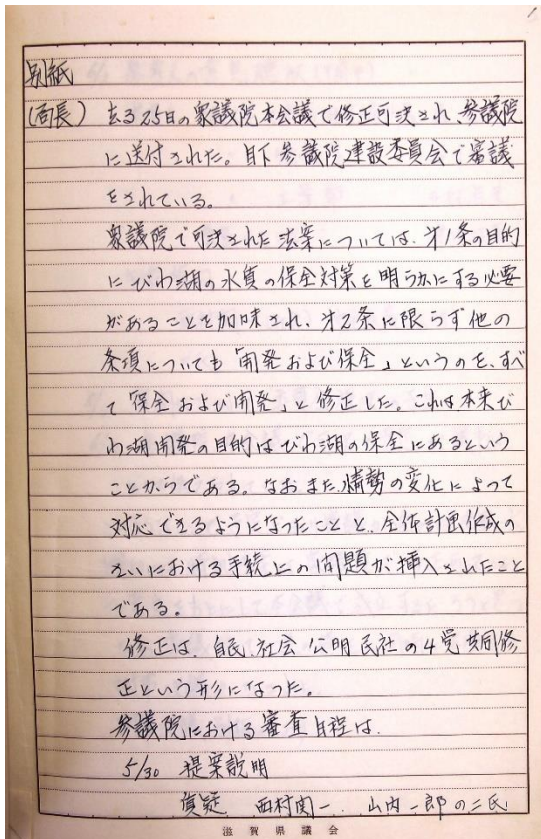 別紙
(局長) 去る25日の衆議院本会議で修正可決され、参議院
に送付された。目下参議院建設委員会で審議
をされている。
衆議院で可決された法案については、才1条の目的
にびわ湖の水質の保全対策を明らかにする必要
があることを加味され、才2条に限らず他の
条項についても「開発および保全」というのを、すべ
て「保全および開発」と修正した。これは本来び
わ湖開発の目的はびわ湖の保全にあるという
ことからである。なおまた、情勢の変化によって
対応できるようになったことと、全体計画作成の
さいにおける手続上の問題が挿入されたこと
である。
修正は、自民、社会 公明 民社の4党共同修
正という形になった。
参議院における審査日程は、
5/30 提案説明
質疑 西村関一、山内一郎の二氏
滋賀県議会